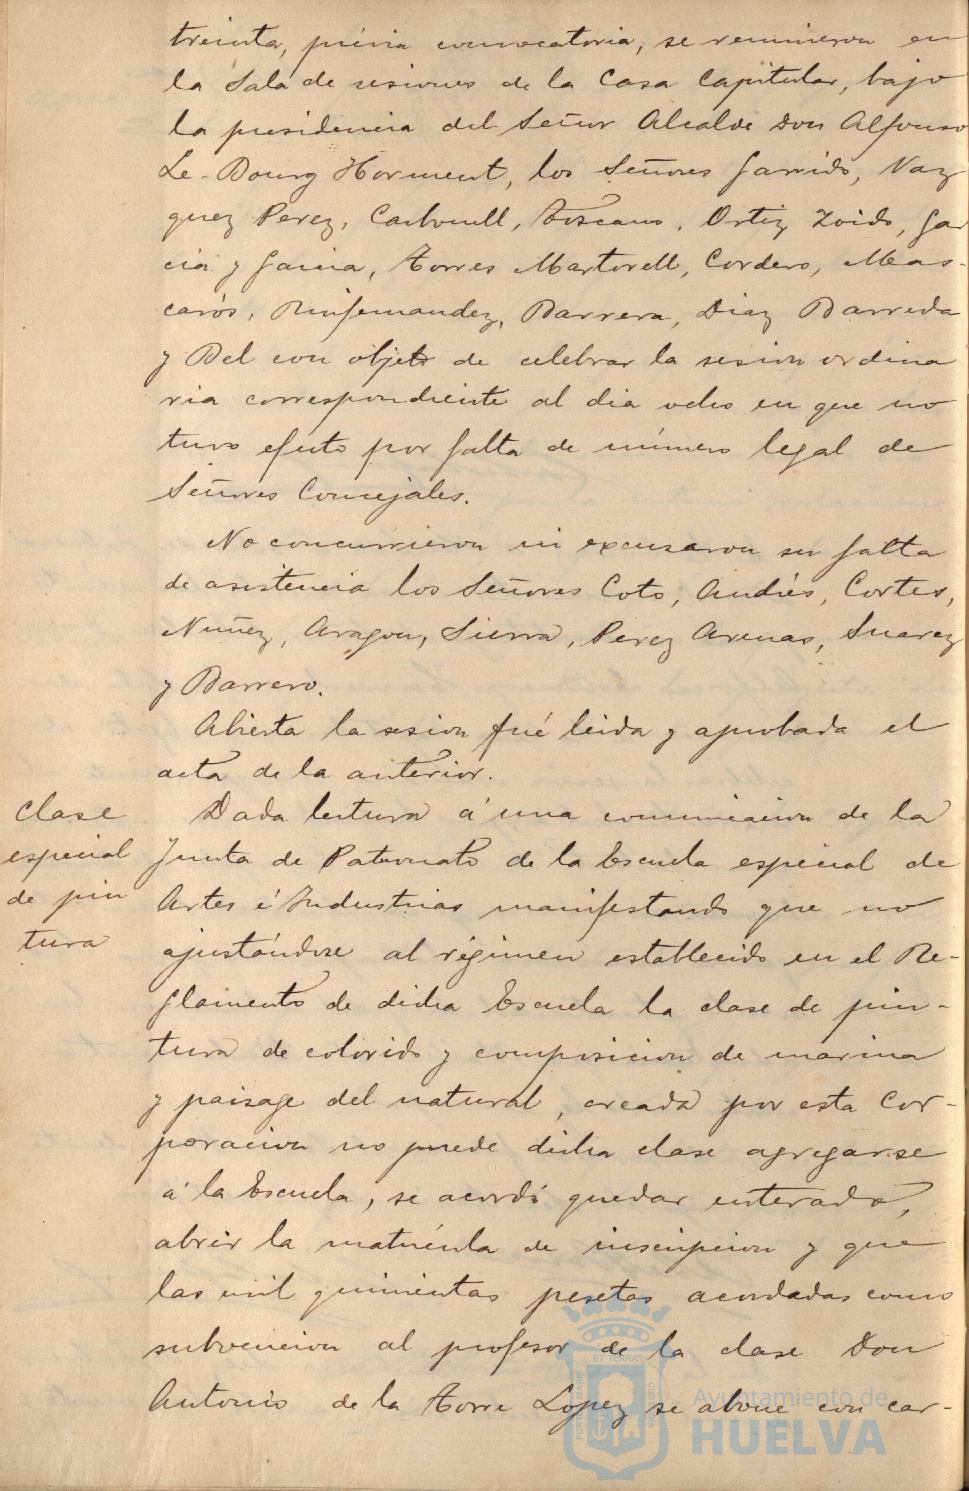 treinta, prévia convocatoria, se reunieron en
la Sala de sesiones de la Casa Capitular, bajo
la presidencia del Señor Alcalde Don Alfonso
Le-Bourg Horment, los Señores Garrido, Vaz
quez Perez, Carbonell, Toscano, Ortiz, Zoido, Gar
cia y Garcia, Torres Martorell, Cordero, Mas-
carós, Ruifernandez, Barrera, Diaz Barreda
y Bel con objeto de celebrar la sesion ordina
ria correspondiente al dia ocho en que no
tuvo efecto por falta de número legal de
Señores Concejales.
No concurrieron ni excusaron su falta
de asistencia los Señores Coto, Andrés, Cortes,
Nuñez, Aragon, Sierra, Perez Arenas, Suarez
y Barrero.
Abierta la sesion fué leida y aprobada el
acta de la anterior.
clase
especial
de pin
tura
Dada lectura á una comunicacion de la
Junta de Patronato de la Escuela especial de
Artes é Industrias manifestando que no
ajustándose al régimen establecido en el Re-
glamento de dicha Escuela la clase de pin-
tura de colorido y composicion de marina
y paisage del natural, creada por esta Cor-
poracion no puede dicha clase agregarse
á la Escuela, se acordó quedar enterado,
abrir la matrícula de inscripcion y que
las mil quinientas pesetas acordadas como
subvencion al profesor de la clase Don
Antonio de la Torre Lopez se abone con car-
Ayuntamiento de
HUELVA